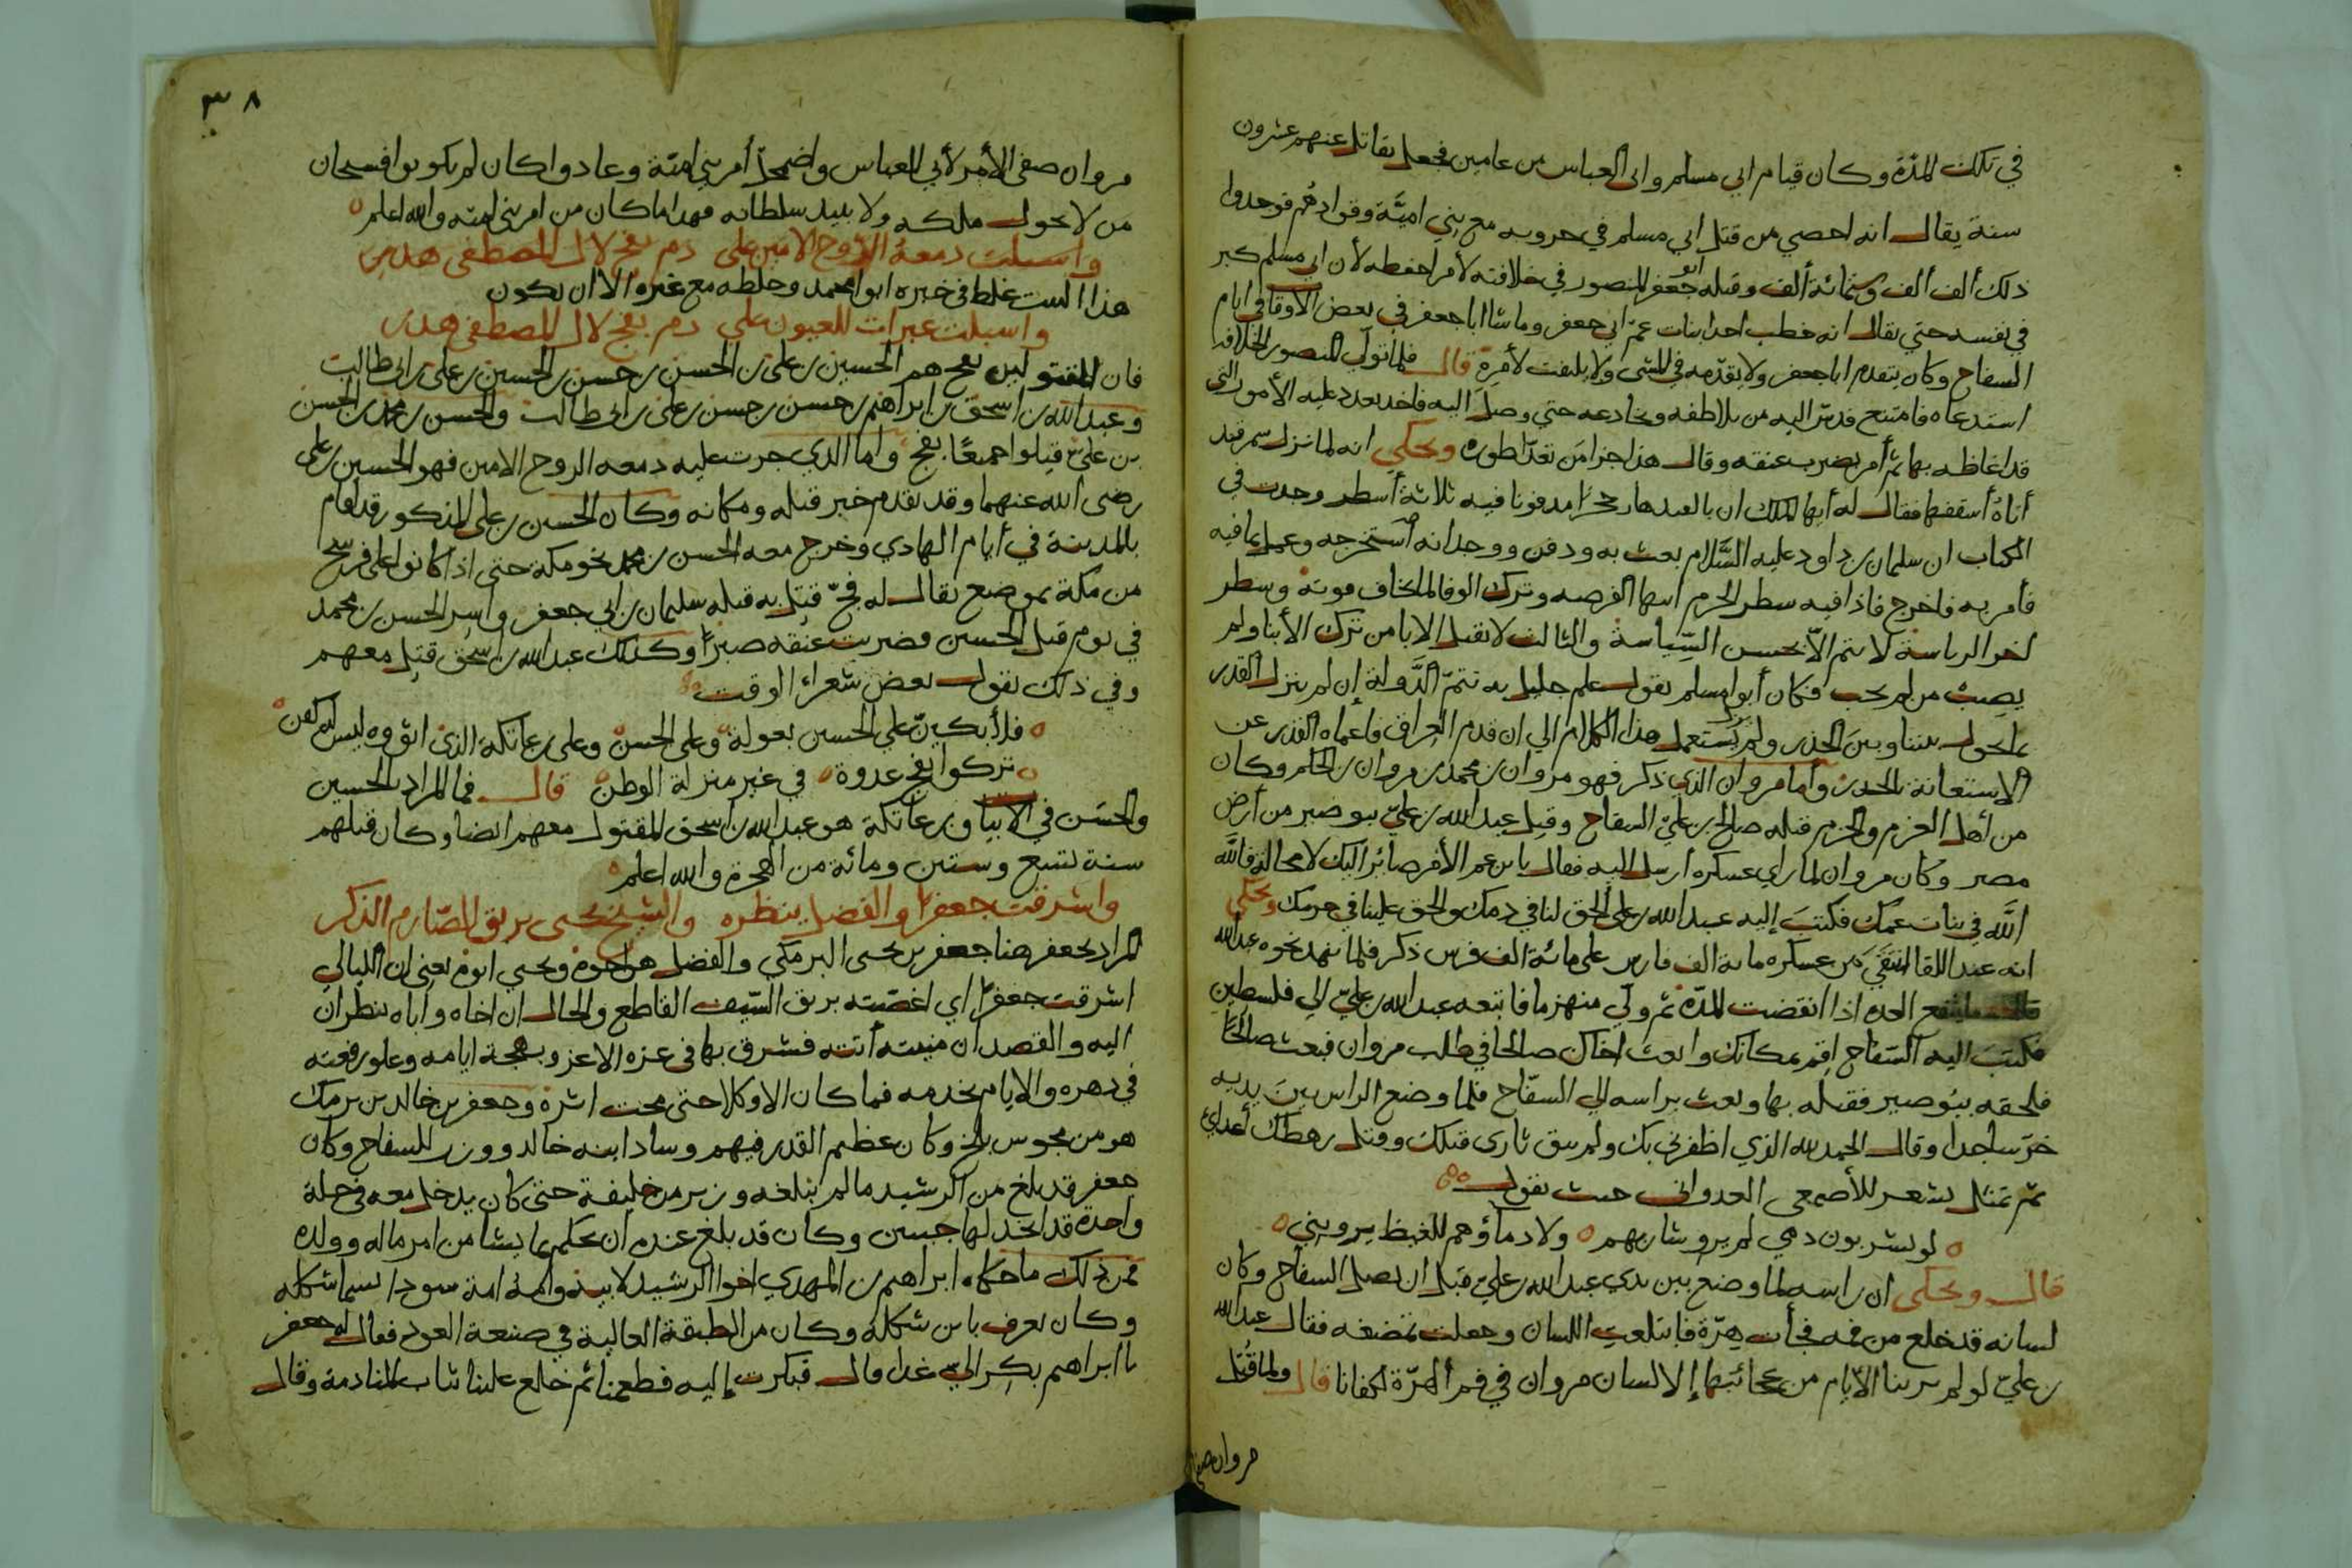 في تلك المدّة وكان قيام ابي مسلم وابي العباس من عامين فجعل يقاتل عنهم عشرون
سنة يقال انه احصي من قتل ابي مسلم في حروبه مع بني اميّة وقوادهم فوجدوا
ذلك ألف ألف وستمائة ألف وقتله ابو جعفر المنصور في خلافته لأمر احفظه لأن ابي مسلم كبر
في نفسه حتي يقال انه خطب احدا بنات عمّ ابي جعفر وما شا ابا جعفر في بعض الأوقات في ايام
السفاح وكان يتقدم ابا جعفر ولا يقدّمه في المشي ولا يلتفت لأمره قال فلما تولّى المنصور الخلافه
استدعاه فامتنع فدسّ اليه من يلاطفه ويخادعه حتي وصل اليه فاخذ يعدد عليه الأمور التي
قد اغاظه بها ثم أمر بضرب عنقه وقال هذا جزا من تعدّا طوره ويحكي انه لما نزل سمرقند
أتاهُ أسقفها فقال له أيها الملك ان بالعبد هار حجرًا مدفونا فيه ثلاثة أسطر وجدت في
الكتاب ان سليمان بن داود عليه السَّلام بعث به ودفن ووجدانه أستخرجه وعمل بما فيه
فأمر به فاخرج فاذا فيه سطر الحزم انتها الفرصه وترك الوفا لما يخاف فوته وسطر
اخر الرياسة لا يتم الاّ بحسن السِّياسة والثالث لا تقبل الا با من ترك الأبنا ولم
يصب من لم يحب فكان أبو مسلم يقول علم جليل به تتمّ الدَّولة إن لم ينزل القدر
ما يحول بيننا وبين الحذر ولم يزل يستعمل هذا الكلام الي ان قدم العراق فاعماه القدر عن
الاستعانة بالحذر وأما مروان الذي ذكر فهو مروان بن محمد بن مروان بن الحكم وكان
من أهل العزم والحزم قتله صالح بن عليّ السفاح وقيل عبد الله بن عليّ ببوصير من أرض
مصر وكان مروان لما راي عسكره أرسل اليه فقال يا بن عم الأمر صائر اليك لا محالة فالله
الله في بنات عمّك فكتبَ إليه عبد الله بن علي الحق لنا في دمك والحق علينا في حرمك ويحكي
انه عند اللقا انتقَي من عسكره مائة الف فارس على مائة الف فرس ذكر فلما نهد نحوه عبد الله
ما ينفع العده اذا انقضت المدّه ثم ولّي منهزما فاتبعه عبد الله بن عليّ الي فلسطين
فكتبَ اليه السّفاح اقم بمكانك وابعث اخاك صالحا في طلب مروان فبعث صالحًا
فلحقه ببُوصير فقتله بها وبعث براسه الي السفّاح فلما وضع الراس بينَ يديه
خرّ ساجدا وقال الحمد لله الذي اظفرني بك ولم يبق ثاري قبلك وقتل رهطك أعداي
ثم تمثل بشعر للأصمعي العدواني حيث يقول
لو يشربون دمي لم يرو شاربهم ولا دماؤهم للغيظ يرويني
قال ويحكى ان راسه لما وضع بين يدي عبد الله بن عليّ قبل ان يصل السفاح وكان
لسانه قد خلع من فمه فجأت هِرّة فابتلعت اللسان وجعلت تمضغه فقال عبد الله
بن عليّ لو لم ترينا الأيام من عجائبها إلا لسان مروان في فم الهرّة لكفانا قال ولما قُتل
مروان صفى
٣٨
مروان صفى الأمر لأبي العباس واضمحلّ أمر بني اميّة وعادوا كان لم يكونوا فسبحان
من لا يحول ملكه ولا يبيد سلطانه فهذا ما كان من امر بني اميّه والله اعلم
واسبلت دمعة الروح الامين على دم بفخ لال المصطفى هدر
هذا البيت غلط في خبره ابو محمد وخلطه مع غيره الا ان يكون
واسبلت عبرات للعيون على دم بفخ لال المصطفى هدر
فان المقتولين بفخ هم الحسين بن علي بن الحسن بن حسن بن الحسين بن علي بن ابي طالب
وعبد الله بن اسحق بن ابراهيم بن حسن بن حسن بن علي بن ابي طالب والحسن بن محمد بن الحسن
بن عليّ قتلوا جميعًا بفخ واما الذي جرت عليه دمعه الروح الامين فهو الحسين بن علي
رضى الله عنهما وقد تقدم خبر قتله ومكانه وكان الحسين بن علي المذكور قد اقام
بالمدينة في أيام الهادي وخرج معه الحسن بن محمد نحو مكة حتى اذا كانوا على فرسخ
من مكة بموضع يقال له فخّ قتل به قتله سليمان بن ابي جعفر واسر الحسن بن محمد
في يوم قتل الحسين فضربت عنقه صبرًا وكذلك عبد الله بن اسحق قتل معهم
وفي ذلك يقول بعض شعراء الوقت
فلأبكينّ علي الحسين بعولة وعلى الحسن وعلى بن عاتكة الذي اثووه ليس له كفن
تركوا بفخ غدوة في غير منزلة الوطن قال فالمراد بالحسين
والحسَن في الابيات وبن عاتكة هو عبد الله بن اسحق المقتول معهم ايضا وكان قتلهم
سنة تسع وستين ومائة من الهجرة والله اعلم
واشرقت جعفرًا والفضل ينظره والشيخ يحيى بريق الصّارم الذكر
المراد بجعفر هنا جعفر بن يحيى البرمكي والفضل هو اخوه ويحيي ابوه يعني ان الليالي
اشرقت جعفرًا اي اغصّته بريق السّيف القاطع والحال ان اخاه واباه ينظران
اليه والقصد ان منيته أتته فشرق بها في عزه الاعز وبهجة ايامه وعلو رفعته
في دهره والايام تخدمه فما كان الاوكلا حتى محت اثره وجعفر بن خالد بن برمك
هو من مجوس بلخ وكان عظيم القدر فيهم وساد ابنه خالد ووزر للسفاح وكان
جعفر قد بلغ من الرشيد ما لم يبلغه وزير من خليفة حتى كان يدخل معه في حلة
واحدة قد اتخذ لها جيبين وكان قد بلغ عنده ان يحكم بما يشا من امر ماله وولده
فمن ذلك ما حكاه ابراهيم بن المهدي اخوا الرشيد لابيه وامه امة سودا اسمها شكله
وكان يعرف بابن شكلة وكان من الطبقة العالية في صنعة العود فقال له جعفر
يا ابراهيم بكر اليّ غدا قال فبكرت إليه فطعمنا ثم خلع علينا ثياب المنادمة وقال